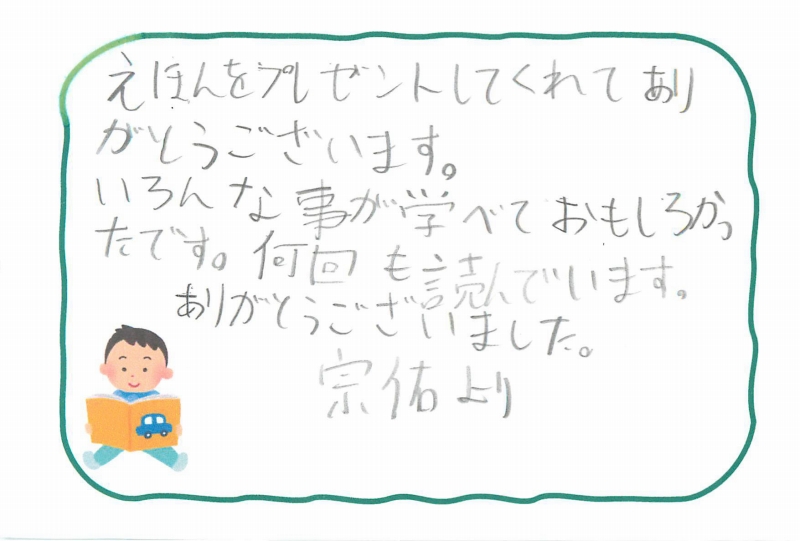 えほんをプレゼントしてくれてあり
がとうございます。
いろんな事が学べておもしろかっ
たです。何回も読んでいます。
ありがとうございました。
宗佑より